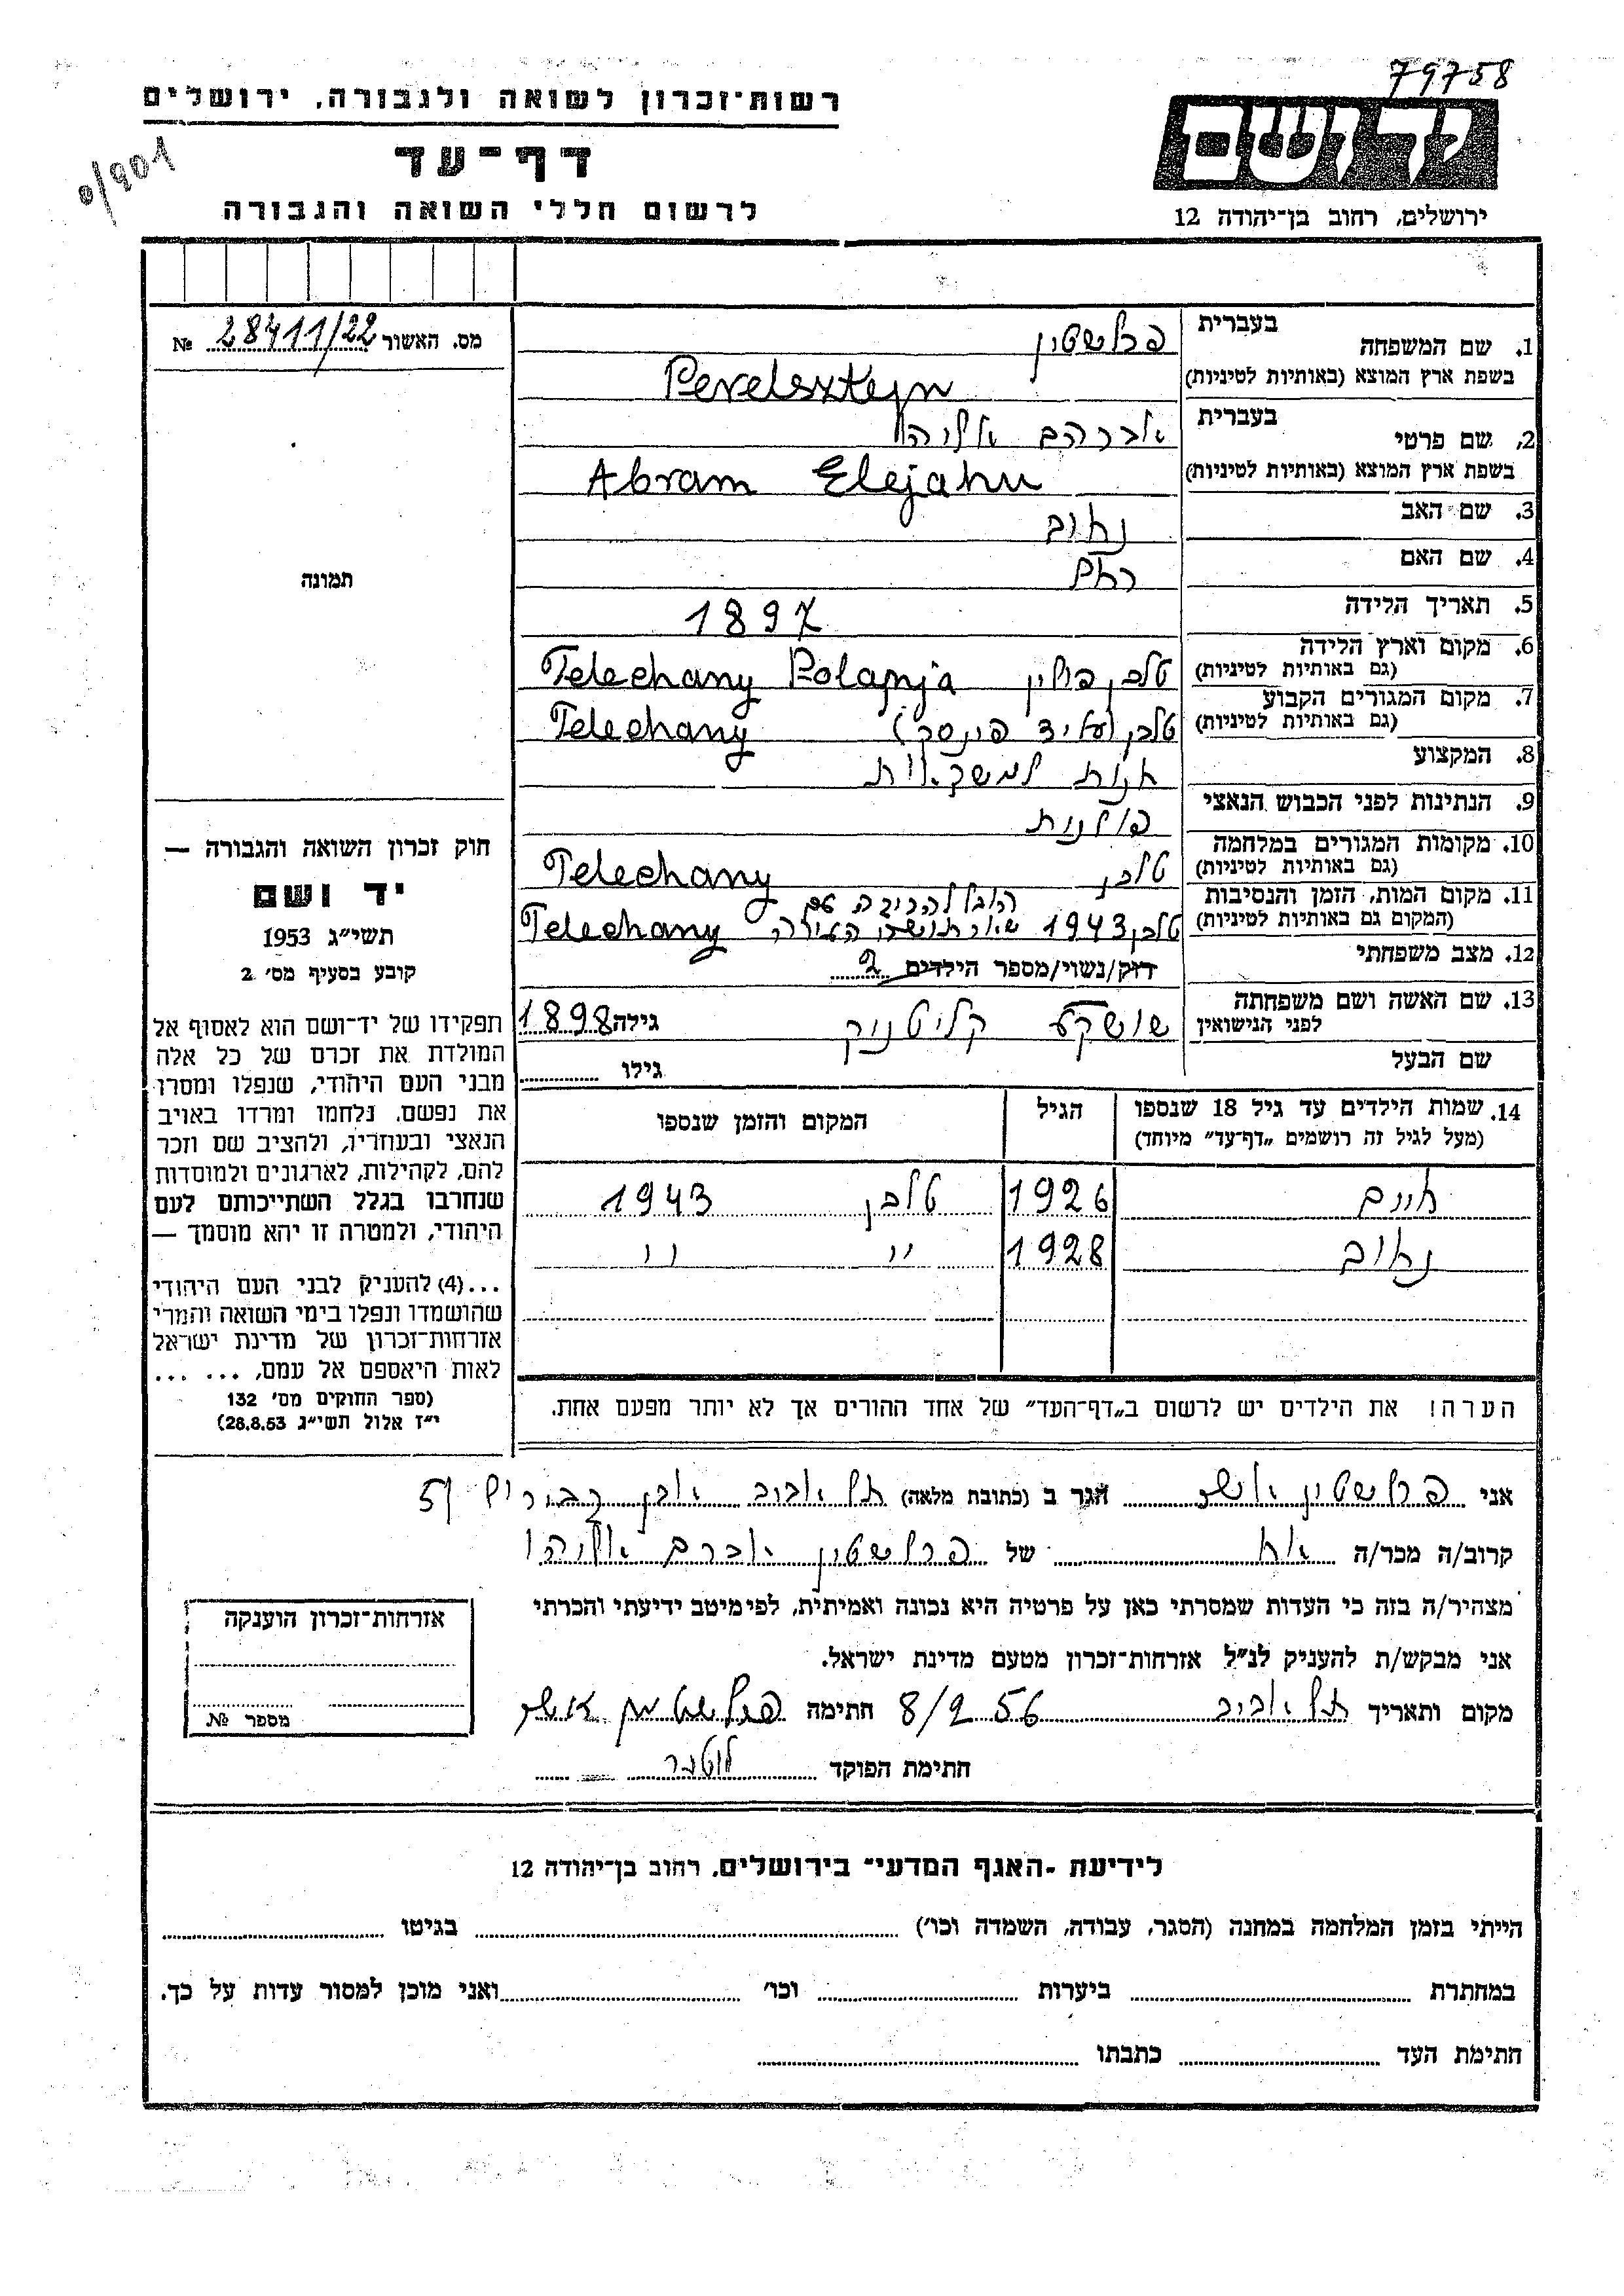 79758
רשות־זכרון לשואה ולגבורה, ירושלים
יד ושם
דף־עד
0/901
לרשום חללי השואה והגבורה
ירושלים, רחוב בן־יהודה 12
בעברית
1. שם המשפחה פרלשטין
בשפת ארץ המוצא (באותיות לטיניות) Perelsztejn
בעברית
2. שם פרטי אברהם אליהו
בשפת ארץ המוצא (באותיות לטיניות) Abram Elejahu
3. שם האב
4. שם האם רחל
5. תאריך הלידה 1897
6. מקום וארץ הלידה
(גם באותיות לטיניות) טלכן פולין Telechany Polanja
7. מקום המגורים הקבוע
(גם באותיות לטיניות) טלכן (על יד פינסק) Telechany
8. המקצוע חנות למשקאות
9. הנתינות לפני הכבוש הנאצי פולנית
10. מקומות המגורים במלחמה
(גם באותיות לטיניות) טלכן Telechany
11. מקום המות, הזמן והנסיבות הובל להריגה עם
(המקום גם באותיות לטיניות) טלכן 1943 שאר תושבי העירה Telechany
12. מצב משפחתי רוק/נשוי/מספר הילדים 2
13. שם האשה ושם משפחתה
לפני הנישואין שושקע קליטניק גילה 1898
שם הבעל גילו
14. שמות הילדים עד גיל 18 שנספו הגיל המקום והזמן שנספו
(מעל לגיל זה רושמים „דף־עד” מיוחד)
חיים 1926 טלכן 1943
1928 " "
הערה! את הילדים יש לרשום ב„דף־העד” של אחד ההורים אך לא יותר מפעם אחת.
מס. האשור 28411/22 №
תמונה
חוק זכרון השואה והגבורה —
יד ושם
תשי״ג 1953
קובע בסעיף מס׳ 2
תפקידו של יד־ושם הוא לאסוף אל
המולדת את זכרם של כל אלה
מבני העם היהודי, שנפלו ומסרו
את נפשם, נלחמו ומרדו באויב
הנאצי ובעוזריו, ולהציב שם וזכר
להם, לקהילות, לארגונים ולמוסדות
שנחרבו בגלל השתייכותם לעם
היהודי, ולמטרה זו יהא מוסמך —
...(4) להעניק לבני העם היהודי
שהושמדו ונפלו בימי השואה והמרי
אזרחות־זכרון של מדינת ישראל
לאות היאספם אל עמם, ... ...
(ספר החוקים מס׳ 132
י״ז אלול תשי״ג 28.8.53)
אני פרלשטין אשר הגר ב (כתובת מלאה) תל אביב אבן גבירול 51
קרוב/ה מכר/ה אח של פרלשטין אברם אליהו
מצהיר/ה בזה כי העדות שמסרתי כאן על פרטיה היא נכונה ואמיתית, לפי מיטב ידיעתי והכרתי
אני מבקש/ת להעניק לנ״ל אזרחות־זכרון מטעם מדינת ישראל.
מקום ותאריך תל אביב 8/2 56 חתימה פרלשטין אשר
חתימת הפוקד
אזרחות־זכרון הוענקה
מספר №
לידיעת ־האגף המדעי־ בירושלים, רחוב בן־יהודה 12
הייתי בזמן המלחמה במחנה (הסגר, עבודה, השמדה וכו׳) בגיטו
במחתרת ביערות וכו׳ ואני מוכן למסור עדות על כך.
חתימת העד כתבתו